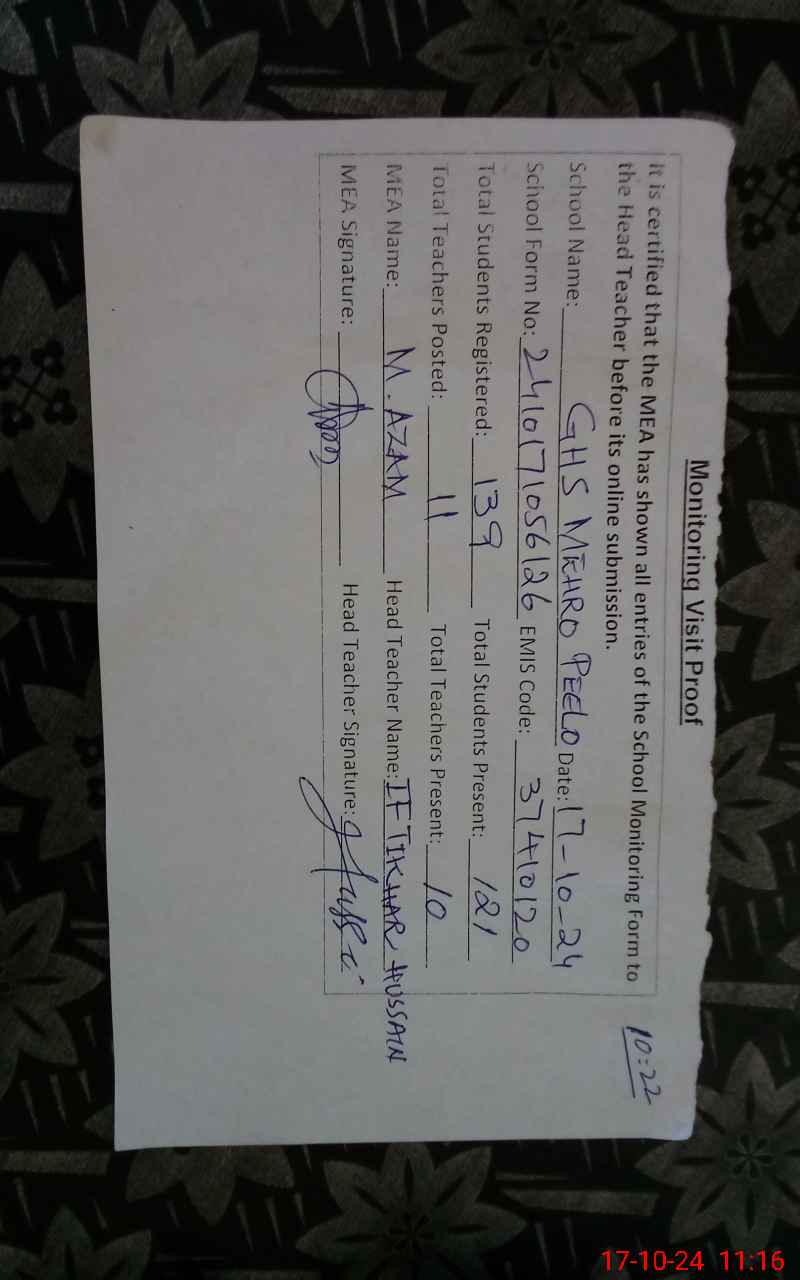 Monitoring Visit Proof
It is certified that the MEA has shown all entries of the School Monitoring Form to
the Head Teacher before its online submission.
10:22
School Name: GHS MEHRO PEELO Date: 17-10-24
School Form No: 2410171056126 EMIS Code: 37410120
Total Students Registered: 139 Total Students Present: 121
Total Teachers Posted: 11 Total Teachers Present: 10
MEA Name: M. AZAM Head Teacher Name: IFTIKHAR HUSSAIN
MEA Signature: Head Teacher Signature:
17-10-24 11:16